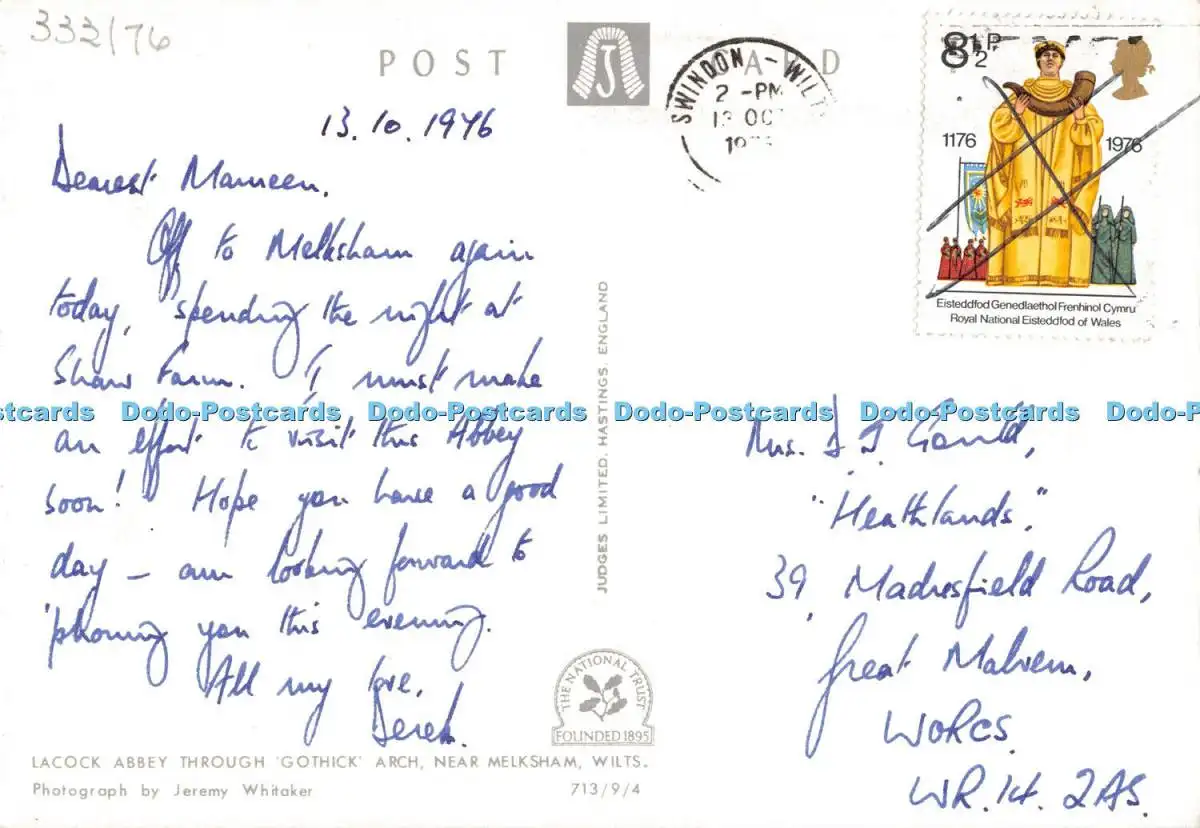 332/76
POST CARD
J
SWINDON - WILTS
2 - PM
13 OC
197
8½P
1176
1976
Eisteddfod Genedlaethol Frenhinol Cymru
Royal National Eisteddfod of Wales
13.10.1976
Dearest Maureen,
Off to Melksham again
today, spending the night at
Shaw Farm. I must make
an effort to visit this Abbey
soon! Hope you have a good
day – am looking forward to
'phoning you this evening.
All my love,
Derek.
JUDGES LIMITED, HASTINGS, ENGLAND
Mrs. J Gould,
"Heathlands",
39, Madresfield Road,
Great Malvern,
WORCS.
WR.14. 2AS.
THE NATIONAL TRUST
FOUNDED 1895
LACOCK ABBEY THROUGH 'GOTHICK' ARCH, NEAR MELKSHAM, WILTS.
Photograph by Jeremy Whitaker
713/9/4
Dodo-Postcards Dodo-Postcards Dodo-Postcards Dodo-Postcards